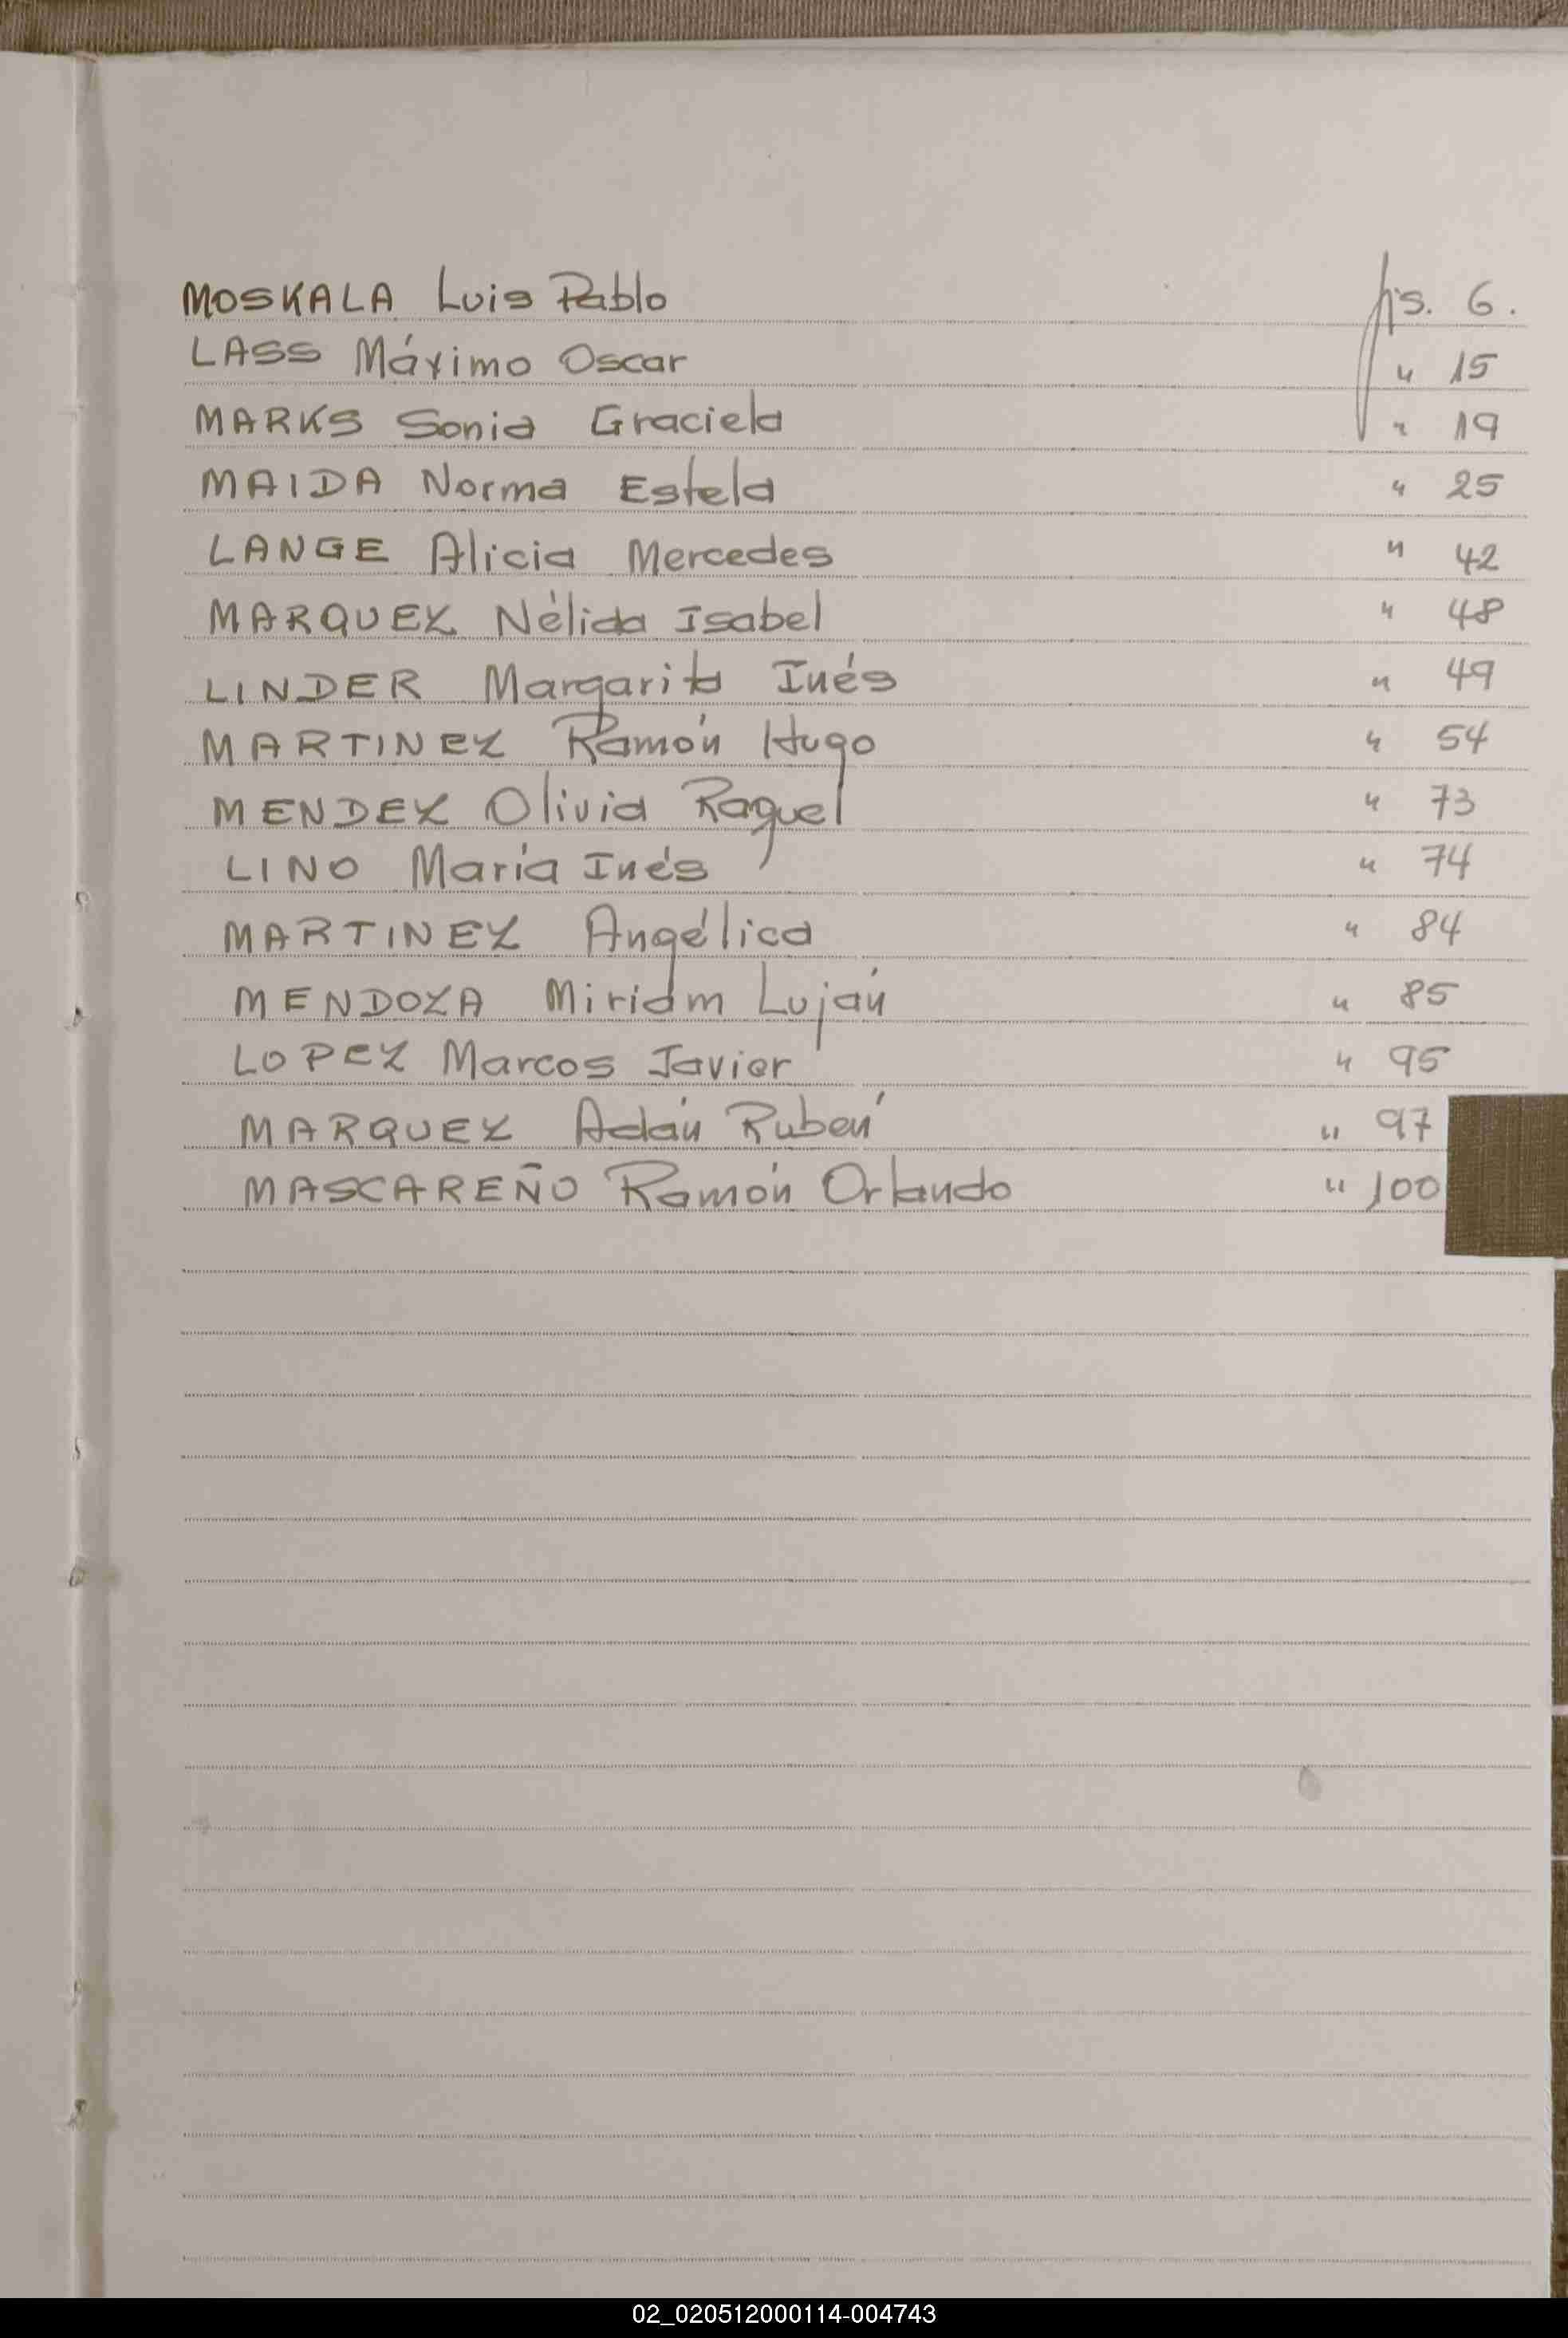 MOSKALA Luis Pablo fjs. 6.
LASS Máximo Oscar " 15
MARKS Sonia Graciela " 19
MAIDA Norma Estela " 25
LANGE Alicia Mercedes " 42
MARQUEZ Nélida Isabel " 48
LINDER Margarita Inés " 49
MARTINEZ Ramón Hugo " 54
MENDEZ Olivia Raquel " 73
LINO María Inés " 74
MARTINEZ Angélica " 84
MENDOZA Miriam Luján " 85
LOPEZ Marcos Javier " 95
MARQUEZ Adán Rubén " 97
MASCAREÑO Ramón Orlando " 100
02_020512000114-004743